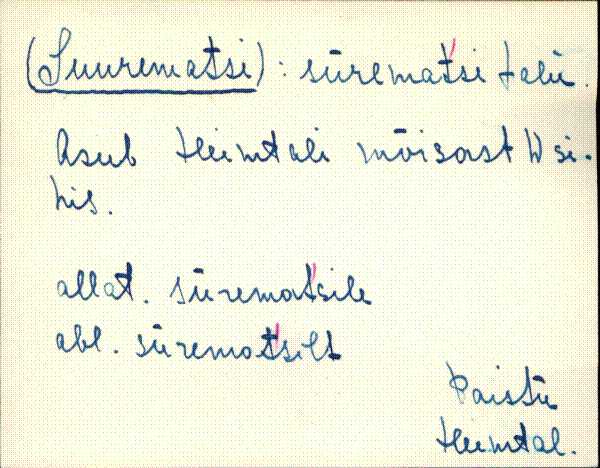 (Suurematsi): sūremat́si talu.
Asub Heimtali mõisast W si-
his.
allat. sūremat́sile
abl. sūremat́silt
Paistu
Heimtal.